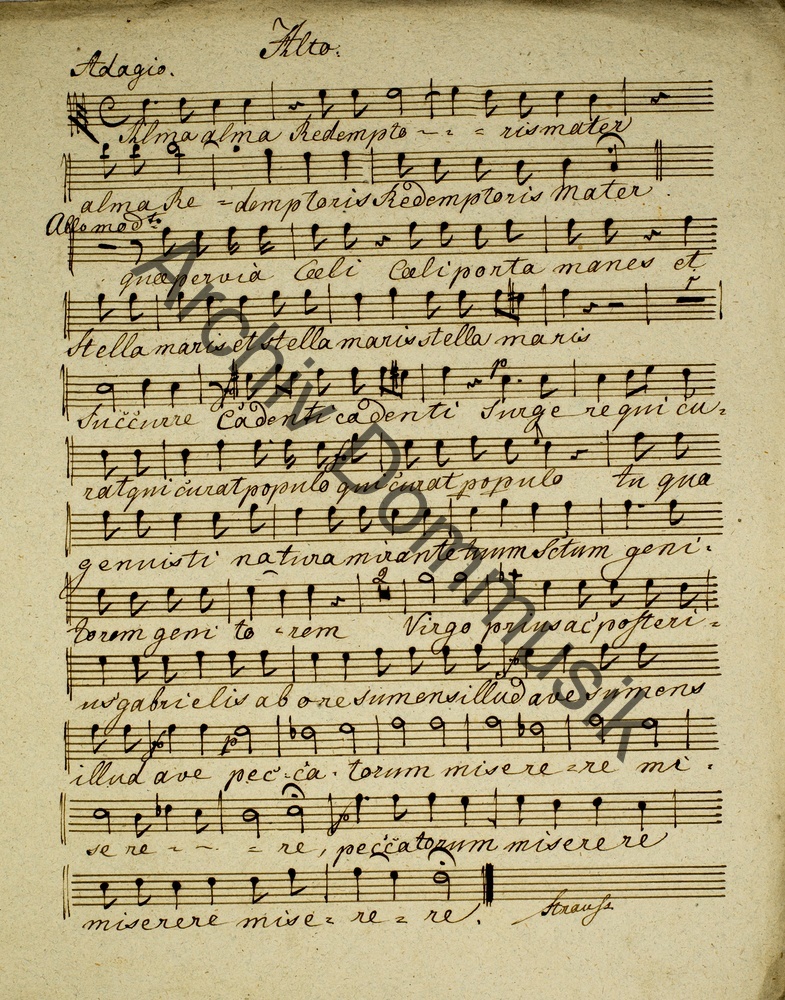 Alto.
Adagio.
Alma alma Redempto - - = ris mater
alma Re =demptoris Redemptoris Mater.
Allo modto
quae pervia Coeli Coeli porta manes et
Stella maris et stella maris stella maris
Succurre Cadenti cadenti Surge re qui cu=
rat qui curat populo qui curat populo tu quae
genuisti natura mirante tuum Sctum geni=
torem geni to =rem Virgo prius ac posteri=
us gabrielis ab ore sumens illud ave sumens
illud ave pec-ca-torum misere=re mi-
sere - - = re, peccatorum miserere
miserere mise=re=re.
Strauss
Archiv Dommusik